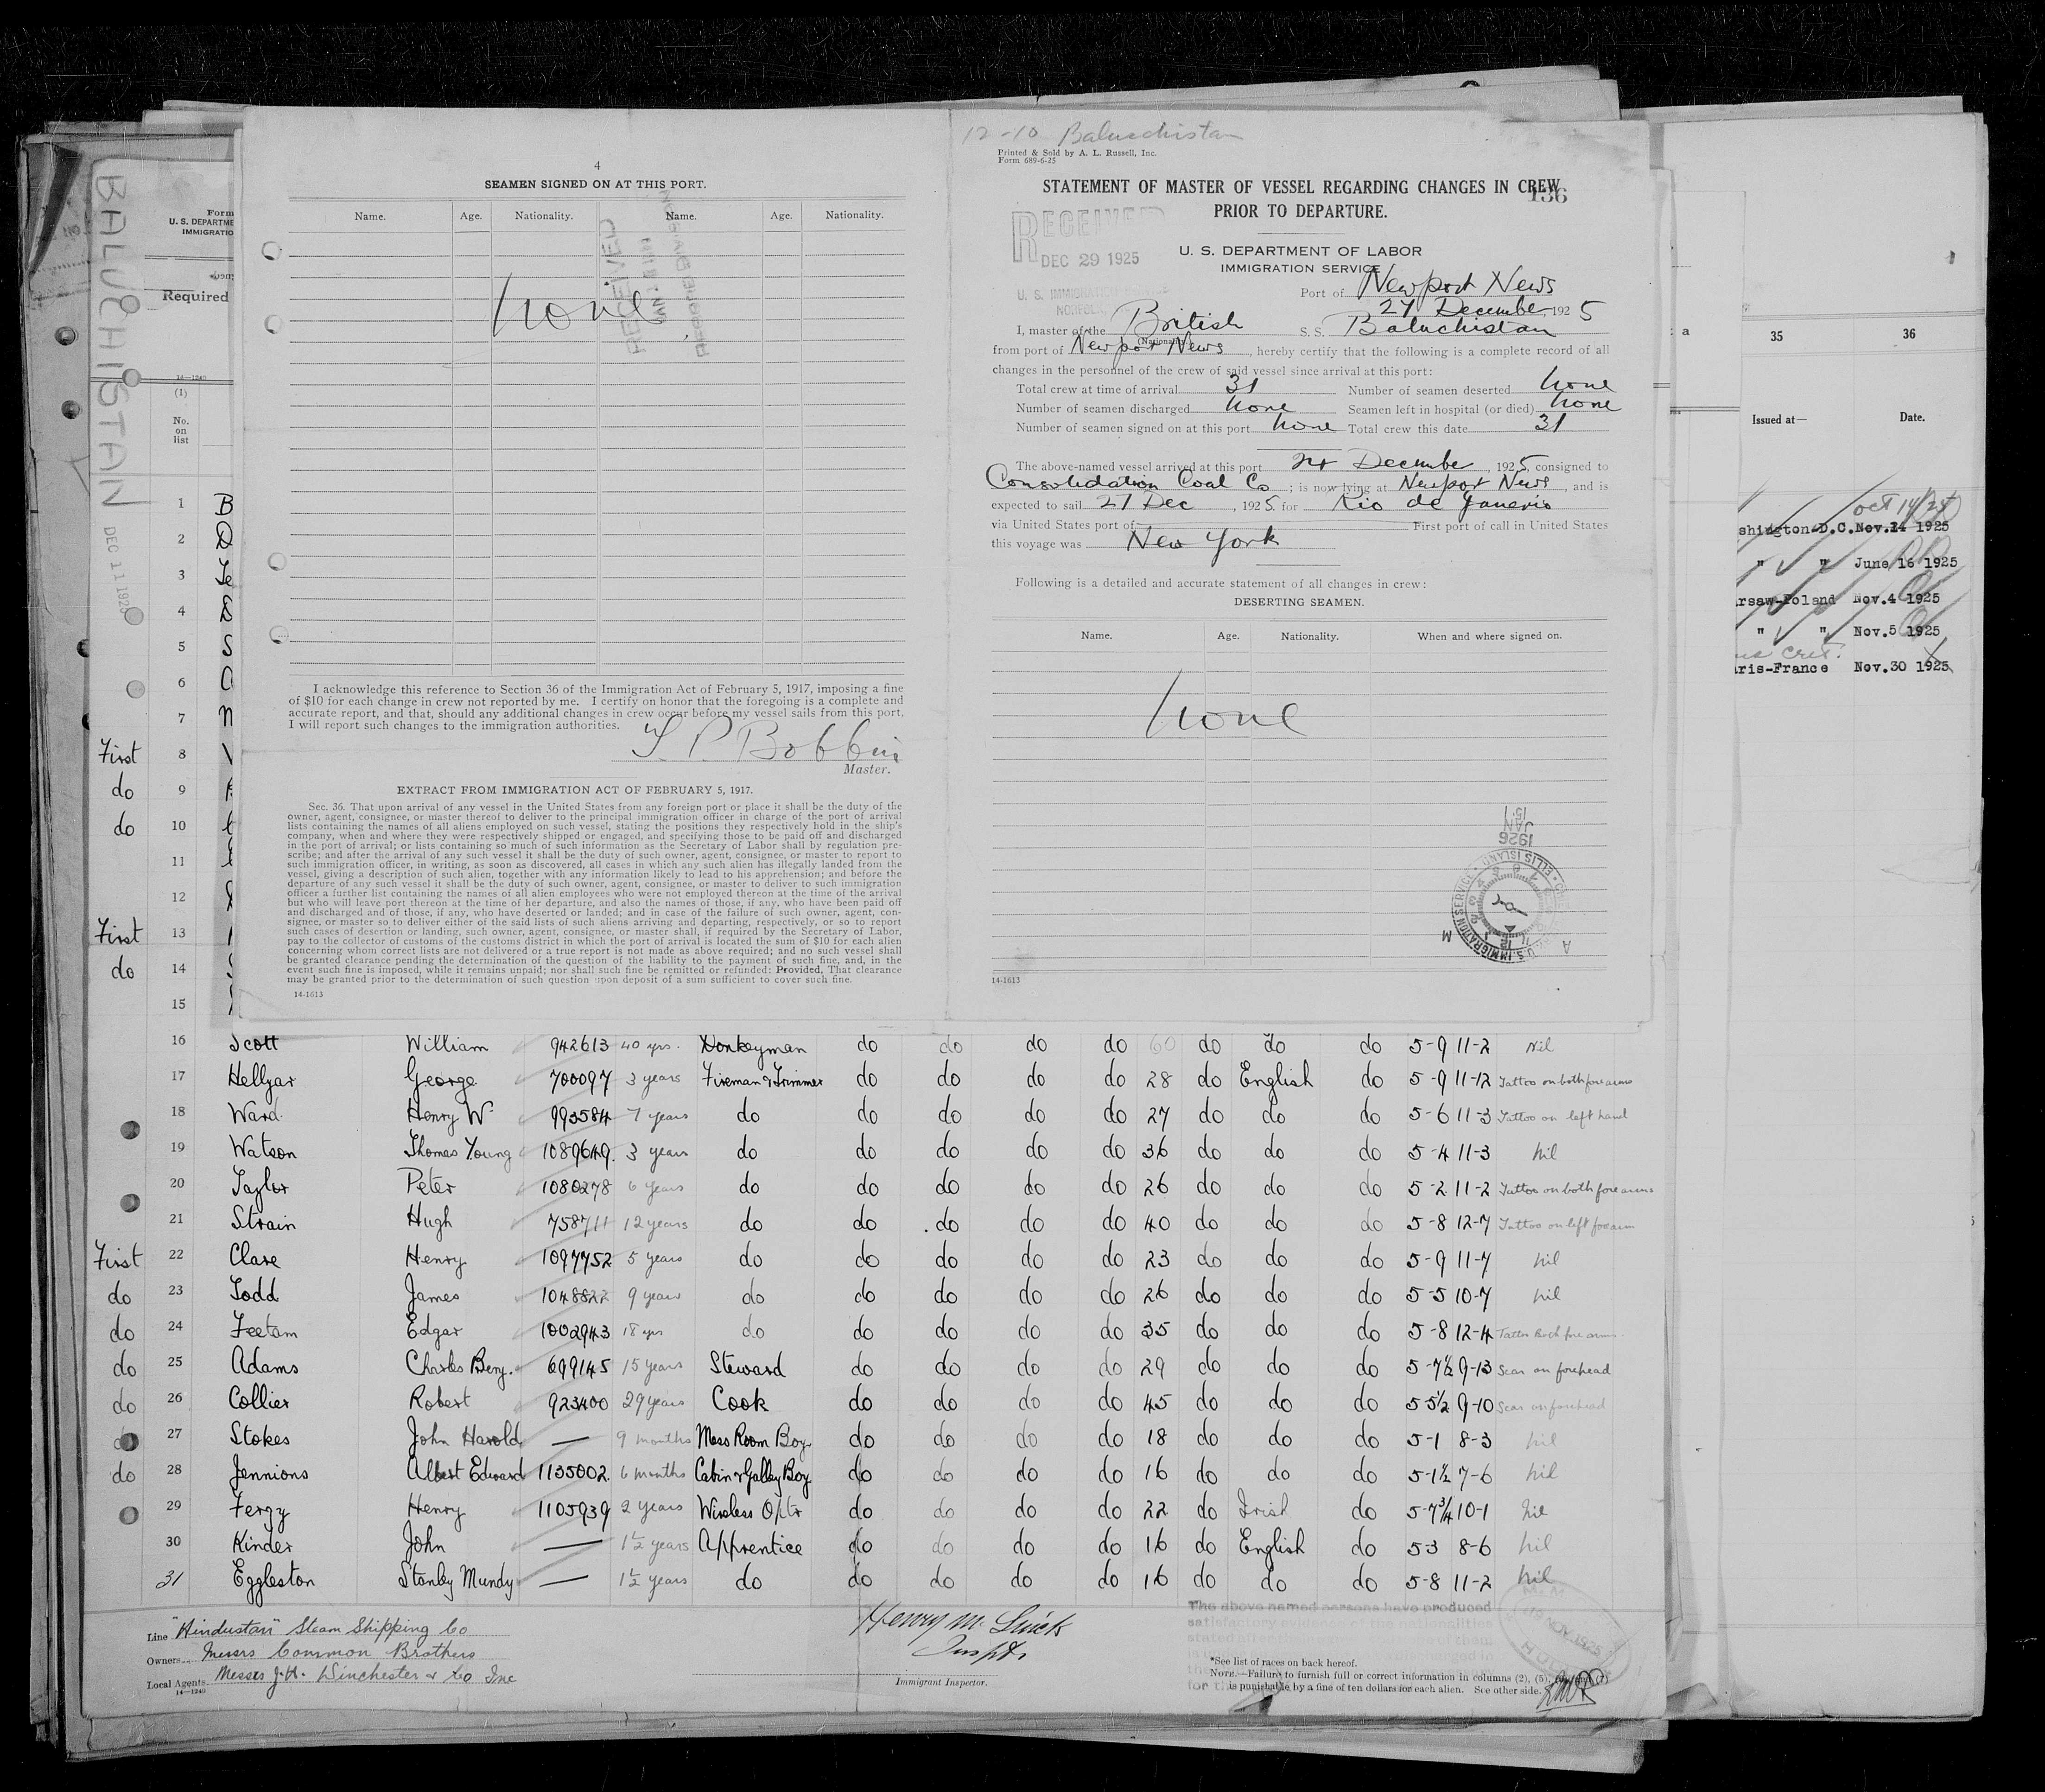 12-10 Baluchistan
Printed & Sold by A. L. Russell, Inc.
Form 689-6-25
4
SEAMEN SIGNED ON AT THIS PORT.
Name. Age. Nationality. Name. Age. Nationality.
RECEIVED
none
I acknowledge this reference to Section 36 of the Immigration Act of February 5, 1917, imposing a fine
of $10 for each change in crew not reported by me. I certify on honor that the foregoing is a complete and
accurate report, and that, should any additional changes in crew occur before my vessel sails from this port,
I will report such changes to the immigration authorities.
Master.
EXTRACT FROM IMMIGRATION ACT OF FEBRUARY 5, 1917.
Sec. 36. That upon arrival of any vessel in the United States from any foreign port or place it shall be the duty of the
owner, agent, consignee, or master thereof to deliver to the principal immigration officer in charge of the port of arrival
lists containing the names of all aliens employed on such vessel, stating the positions they respectively hold in the ship's
company, when and where they were respectively shipped or engaged, and specifying those to be paid off and discharged
in the port of arrival; or lists containing so much of such information as the Secretary of Labor shall by regulation pre-
scribe; and after the arrival of any such vessel it shall be the duty of such owner, agent, consignee, or master to report to
such immigration officer, in writing, as soon as discovered, all cases in which any such alien has illegally landed from the
vessel, giving a description of such alien, together with any information likely to lead to his apprehension; and before the
departure of any such vessel it shall be the duty of such owner, agent, consignee, or master to deliver to such immigration
officer a further list containing the names of all alien employees who were not employed thereon at the time of the arrival
but who will leave port thereon at the time of her departure, and also the names of those, if any, who have been paid off
and discharged and of those, if any, who have deserted or landed; and in case of the failure of such owner, agent, con-
signee, or master so to deliver either of the said lists of such aliens arriving and departing, respectively, or so to report
such cases of desertion or landing, such owner, agent, consignee, or master shall, if required by the Secretary of Labor,
pay to the collector of customs of the customs district in which the port of arrival is located the sum of $10 for each alien
concerning whom correct lists are not delivered or a true report is not made as above required; and no such vessel shall
be granted clearance pending the determination of the question of the liability to the payment of such fine, and, in the
event such fine is imposed, while it remains unpaid; nor shall such fine be remitted or refunded: Provided, That clearance
may be granted prior to the determination of such question upon deposit of a sum sufficient to cover such fine.
14-1613
STATEMENT OF MASTER OF VESSEL REGARDING CHANGES IN CREW
136
PRIOR TO DEPARTURE.
RECEIVED
DEC 29 1925
U. S. DEPARTMENT OF LABOR
IMMIGRATION SERVICE
Port of Newport News
27 December, 1925
I, master of the British S. S. Baluchistan
(Nationality)
from port of Newport News, hereby certify that the following is a complete record of all
changes in the personnel of the crew of said vessel since arrival at this port:
Total crew at time of arrival 31 Number of seamen deserted none
Number of seamen discharged none Seamen left in hospital (or died) none
Number of seamen signed on at this port none Total crew this date 31
The above-named vessel arrived at this port December, 1925, consigned to
Consolidation Coal Co; is now lying at Newport News, and is
expected to sail 27 Dec, 1925 for Rio de Janerio
via United States port of First port of call in United States
this voyage was New York
Following is a detailed and accurate statement of all changes in crew:
DESERTING SEAMEN.
Name. Age. Nationality. When and where signed on.
none
1926
JAN
U.S. IMMIGRATION SERVICE ELLIS ISLAND
14-1613
BALUCHISTAN DEC 11 192
Form
U. S. DEPARTME
IMMIGRATIO
Required
14—1240
(1)
No.
on
list
1 B
2 D
3
4
5 S
6
7
First 8
do 9
do 10
11
12
First 13
do 14
15
16 Scott William 942613 40 yrs. Donkeyman do do do do 60 do do do 5-9 11-2 Nil
17 Hellyar George 700097 3 years Fireman & Trimmer do do do do 28 do English do 5-9 11-12 Tattoo on both forearms
18 Ward Henry W 993584 7 years do do do do do 27 do do do 5-6 11-3 Tattoo on left hand
19 Watson Thomas Young 1089649 3 years do do do do do 36 do do do 5-4 11-3 nil
20 Taylor Peter 1080278 6 years do do do do do 26 do do do 5-2 11-2 Tattoo on both forearms
21 Strain Hugh 758711 12 years do do do do do 40 do do do 5-8 12-7 Tattoo on left forearm
First 22 Clare Henry 1097752 5 years do do do do do 23 do do do 5-9 11-7 nil
do 23 Todd James 1048822 9 years do do do do do 26 do do do 5-5 10-7 nil
do 24 Feetam Edgar 1002943 18 yrs do do do do do 35 do do do 5-8 12-4 Tattoo Both forearms.
do 25 Adams Charles Beny. 699145 15 years Steward do do do do 29 do do do 5-7½ 9-13 Scar on forehead
do 26 Collier Robert 923400 29 years Cook do do do do 45 do do do 5-5½ 9-10 Scar on forehead
do 27 Stokes John Harold — 9 months Mess Room Boy do do do do 18 do do do 5-1 8-3 nil
do 28 Jennions Albert Edward 1135002 6 months Cabin & Galley Boy do do do do 16 do do do 5-1½ 7-6 nil
29 Fergy Henry 1105939 2 years Wireless Optr do do do do 22 do Irish do 5-7¾ 10-1 nil
30 Kinder John — 1½ years Apprentice do do do do 16 do English do 5-3 8-6 nil
31 Eggleston Stanley Mundy — 1½ years do do do do do 16 do do do 5-8 11-2 nil
Line "Hindustan" Steam Shipping Co
Owners Messrs Common Brothers
Local Agents Messrs J.H. Winchester & Co Inc
14—1240
Inspt.
Immigrant Inspector.
The above named persons have produced
satisfactory evidence of the nationalities
NOV 1925
*See list of races on back hereof.
NOTE.—Failure to furnish full or correct information in columns (2), (5), (7)
is punishable by a fine of ten dollars for each alien. See other side.
a
35 36
Issued at— Date.
Oct 14/24
shington-D.C. Nov.24 1925
" " June 16 1925
rsaw-Poland Nov.4 1925
" " Nov.5 1925
ris-France Nov.30 1925